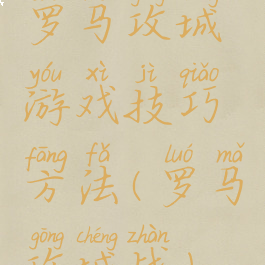 罗马攻城
yóu xì jì qiǎo
游戏技巧
fāng fǎ luó mǎ
方法(罗马
gōng chéng zhàn
攻城战)